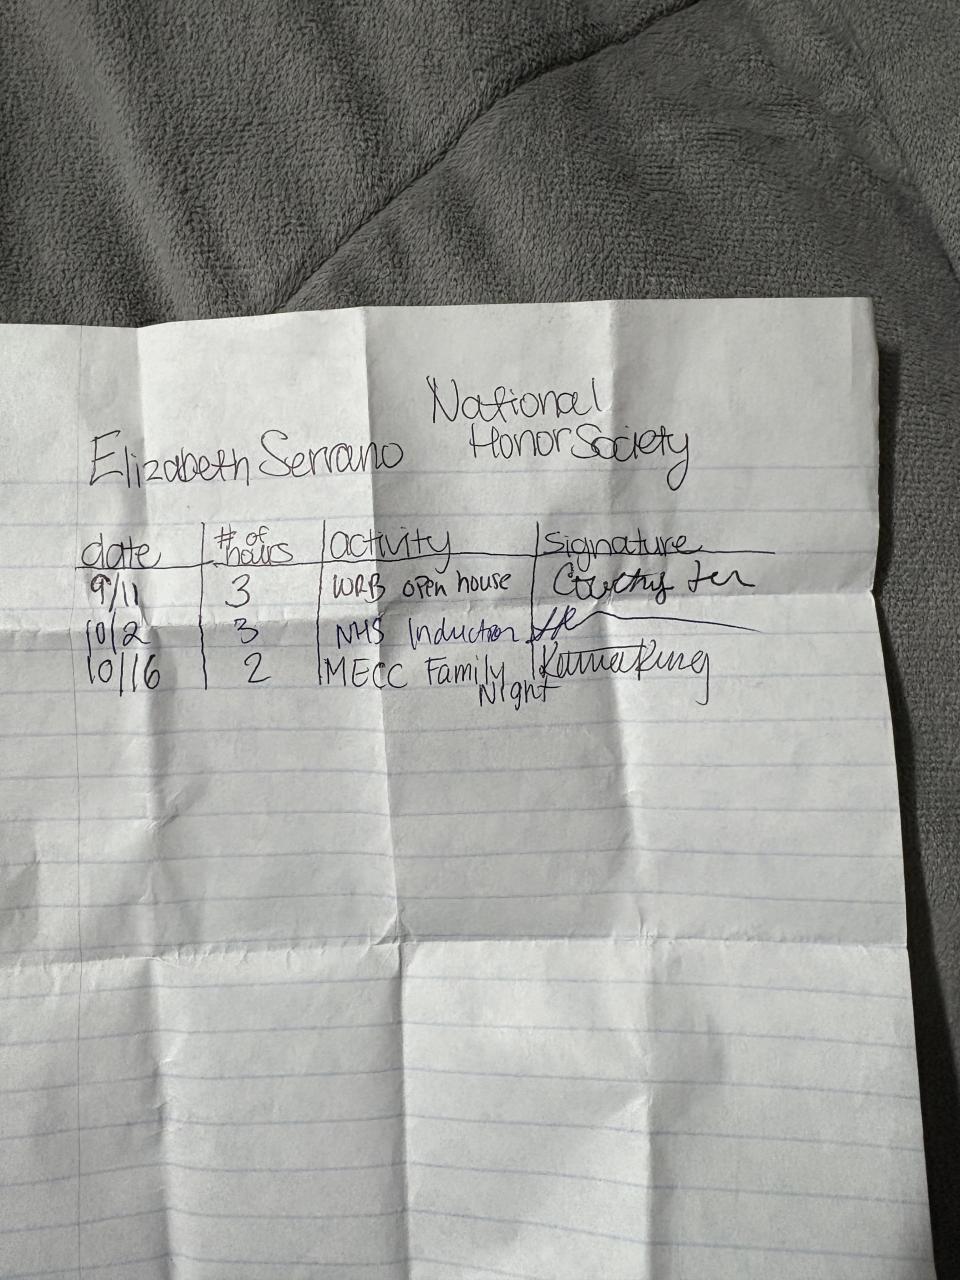 National
Elizabeth Serrano Honor Society
date # of hours activity signature
9/11 3 WRB open house
10/2 3 NHS Induction
10/16 2 MECC Family
Night